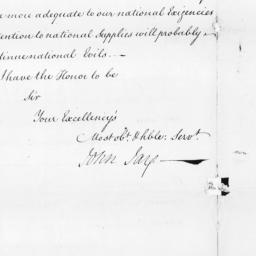 more adequate to our national Exigencies
ention to national Supplies will probably
tinue national Evils.—
I have the Honor to be
Sir
Your Excellency's
Most obt. & hble: Servt.
John Jay